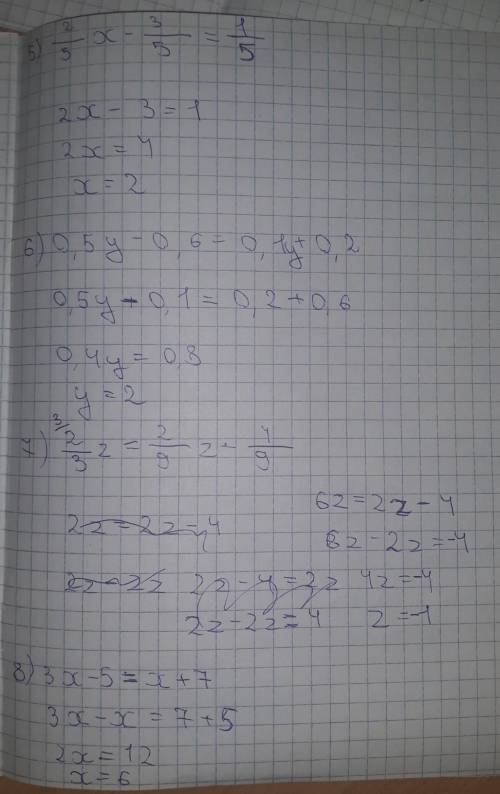 5) 2/5 x - 3/5 = 1/5
2x - 3 = 1
2x = 4
x = 2
6) 0,5y - 0,6 = 0,1y + 0,2
0,5y - 0,1 = 0,2 + 0,6
0,4y = 0,8
y = 2
7) 3/ 2/3 z = 2/9 z - 4/9
6z = 2z - 4
2z = 2z - 4
6z - 2z = -4
2z - 4 = 2z
4z = -4
2z - 2z = 4
z = -1
8) 3x - 5 = x + 7
3x - x = 7 + 5
2x = 12
x = 6